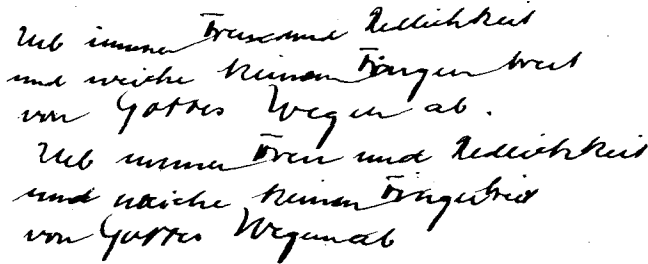 Ueb immer Treue und Redlichkeit
und weiche keinen Finger breit
von Gottes Wegen ab.
Ueb immer Treu und Redlichkeit
und weiche keinen Fingerbreit
von Gottes Wegen ab